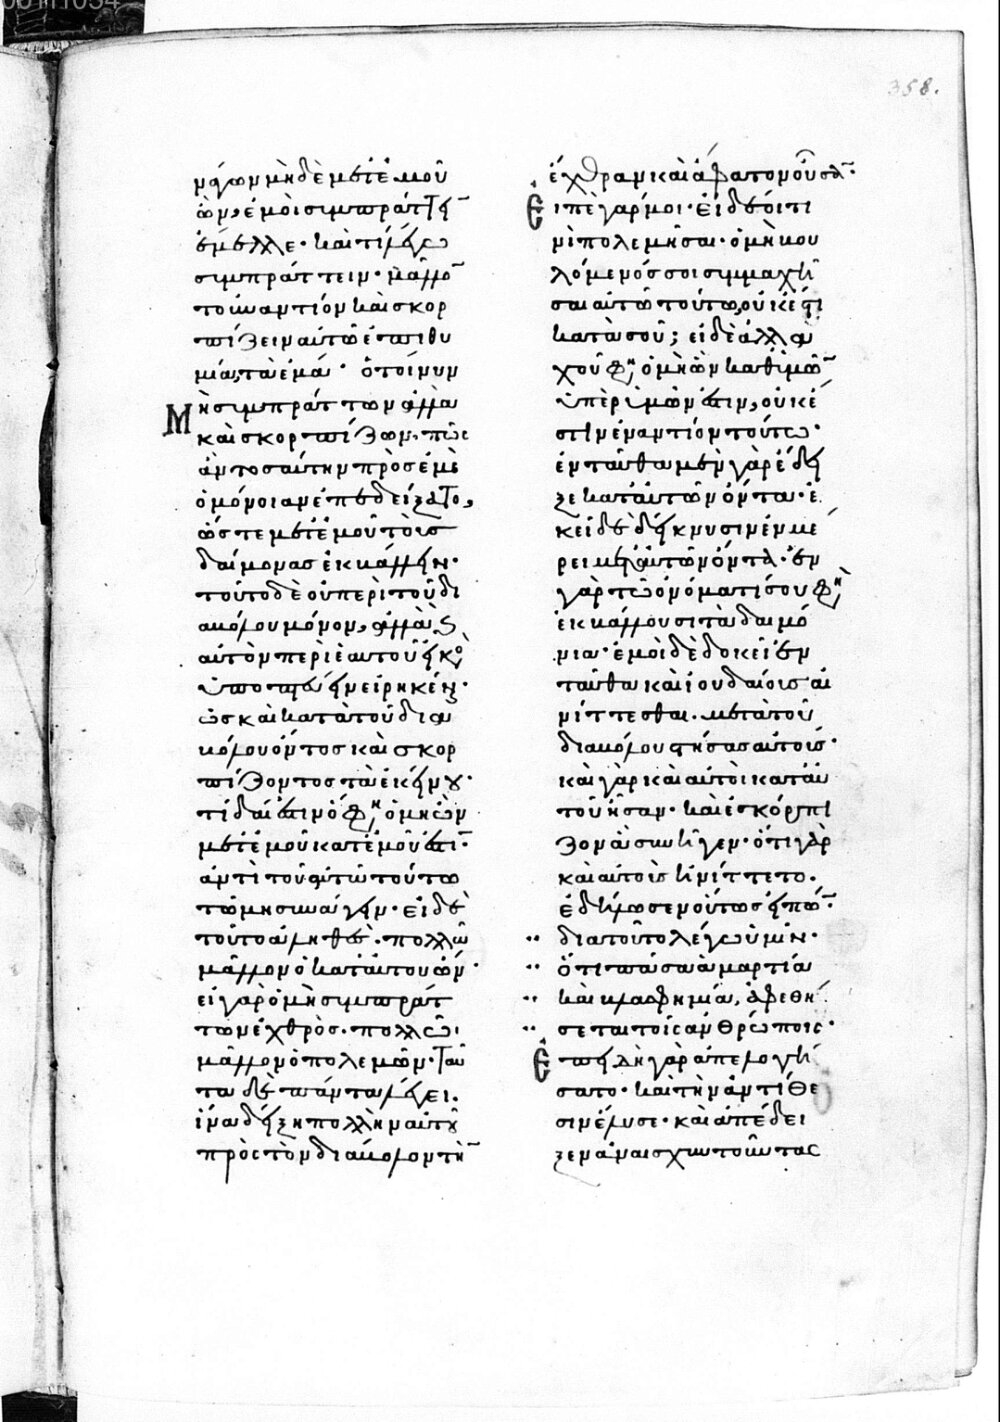 358.
νάγων μηδὲ μετ' ἐμοῦ
ὢν, ἐμοὶ συμπράττειν
ἔμελλε· καὶ τί λέγω
συμπράττειν· μᾶλλον
τοὐναντίον καὶ σκορ
πίζειν αὐτῶ ἐπιθυ
μία, τὰ ἐμά· ὁ τοίνυν
Μὴ συμπράττων ἀλλὰ
καὶ σκορπίζων, πῶς
ἂν τοσαύτην πρὸς ἐμὲ
ὁμόνοιαν ἐπεδείξατο,
ὥστε μετ' ἐμοῦ τοὺς
δαίμονας ἐκβάλλειν·
τοῦτο δὲ οὐ περὶ τοῦ δι
αβόλου μόνον, ἀλλὰ καὶ
αὐτὸν περὶ ἑαυτοῦ εἰκὸς
ὑποπτεύειν εἰρηκέναι·
ὡς καὶ κατὰ τοῦ δια
βόλου ὄντος καὶ σκορ
πίζοντος τὰ ἐκείνου·
τί δαί ἐστιν ὅ φησιν, ὁ μὴ ὢν
μετ' ἐμοῦ κατ' ἐμοῦ ἐστι·
ἀντὶ τοῦ αὐτῶ τούτω
τῶ μὴ συνάγειν· εἰ δὲ
τοῦτο ἀληθὲς, πολλῶ
μᾶλλον ὁ κατ' αὐτοῦ ὤν·
εἰ γὰρ ὁ μὴ συμπράτ
των ἐχθρὸς· πολλῶ
μᾶλλον ὁ πολεμῶν· ταῦ
τα δὲ πάντα λέγει.
ἵνα δείξη πολλὴν αὐτοῦ
πρὸς τὸν διάβολον τὴν
ἔχθραν καὶ ἄφατον οὖσαν·
Εἰπὲ γάρ μοι· εἰ δέοι τι
νὶ πολεμῆσαι· ὁ μὴ βου
λόμενός σοι συμμαχῆ
σαι αὐτῶ τούτω, οὐκ ἔστι
κατὰ σοῦ; εἰ δὲ ἀλλα
χοῦ φησιν, ὁ μὴ ὢν καθ' ὑμῶν
ὑπὲρ ὑμῶν ἐστιν, οὐκ ἔ
στιν ἐναντίον τούτω·
ἐνταῦθα μὲν γὰρ ἔδει
ξε κατ' αὐτῶν ὄντα· ἐ
κεῖ δὲ δείκνυσιν ἐν μέ
ρει μετ' αὐτῶν ὄντα· ἐν
γὰρ τῶ ὀνόματί σου φησὶν
ἐκβάλλουσι τὰ δαιμό
νια· ἐμοὶ δὲ δοκεῖ ἐν
ταῦθα καὶ ἰουδαίοις αἰ
νίττεσθαι. μετὰ τοῦ
διαβόλου στήσας αὐτούς·
καὶ γὰρ καὶ αὐτοὶ κατ' αὐ
τοῦ ἦσαν· καὶ ἐσκόρπι
ζον ἃ συνῆγεν· ὅτι γὰρ
καὶ αὐτοὺς ἠνίττετο.
ἐδήλωσεν οὕτως εἰπών·
διατοῦτο λέγω ὑμῖν·
ὅτι πᾶσα ἁμαρτία
καὶ βλασφημία, ἀφεθή
σεται τοῖς ἀνθρώποις·
Ἐπειδὴ γὰρ ἀπελογή
σατο· καὶ τὴν ἀντίθε
σιν ἔλυσε· καὶ ἀπέδει
ξεν ἀναισχυντοῦντας